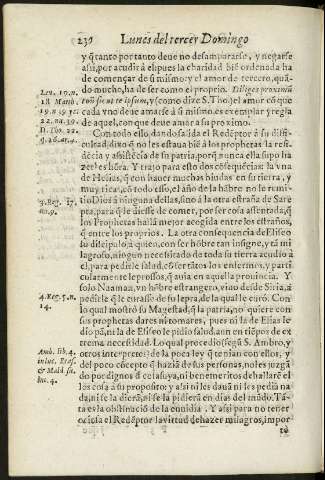 236 Lunes del tercer Domingo
y q̃ tanto por tanto deue no desampararse, y negarse
assi, por acudir à ellos pues la charidad biẽ ordenada ha
de començar de sí mismo: y el amor de tercero, quã
do mucho, ha de ser como el proprio. Diliges proximũ
tuũ sicut te ipsum, y (como dize S. Tho.) el amor cõ que
cada vno deue amarse à si mismo, es exemplar y regla
de aquel, con que deue amar à su proximo.
Leu. 19. n.
18 Matth.
19. n. 19. &
22. n. 39.
D. Tho. 22.
q. 26. ar. 4.
Con todo esso, dando salida el Redẽptor à su dificultad
cultad, dixo q̃ no les estaua biẽ à los prophetas la residẽcia
dẽcia y assistẽcia de su patria, porq̃ nunca ella supo ha
zerles hõra. Y trajo para esto dos cõsequẽcias: la vna
de Helias, q̃ con hauer muchas biudas en su tierra, y
muy ricas, cõ todo esso, el año de la hãbre no le remi
tio Dios à ninguna dellas, sino à la otra estraña de Sare
pta, para q̃ le diesse de comer, por ser cosa assentada, q̃
los Prophetas hallã mejor acogida entre los estraños,
q̃ entre los proprios. La otra consequencia de Eliseo
su discipulo, à quien, con ser hõbre tan insigne, y tã mi
lagroso, ningun necessitado de toda su tierra acudio à
el, para pedirle salud, cõ ser tãtos los enfermos, y parti
cularmente leprosos, q̃ auia en aquella prouincia. Y
solo Naaman, vn hõbre estrangero, vino desde Siria, à
pedirle q̃ le curasse de su lepra, de la qual le curò. Con
lo qual mostrò su Magestad, q̃ la patria, no quiere con
sus prophetas dares ni tomares, pues ni à la de Elias le
dio pã, ni la de Eliseo le pidio salud, aun en tiẽpos de ex
trema necessidad. Lo qual procedio segũ S. Ambro, y
3. Reg. 17.
nu. 9.
4. Reg. 5. n.
14.
Amb. lib. 4.
in Luc.
otros interpretes: de la poca ley q̃ tenian con ellos, y
del poco cõcepto q̃ hazia de sus personas, no les juzgã
do por dignos
los cosa à su proposito: y assi ni les dauã ni les pedia na
da, ni se la dierã, ni se la pidierã en dias del mũdo. Tã
ta es la obstinaciõ de la embidia. Y assi para no tener
ociosa el Redẽptor la virtud de hazer milagros, impor